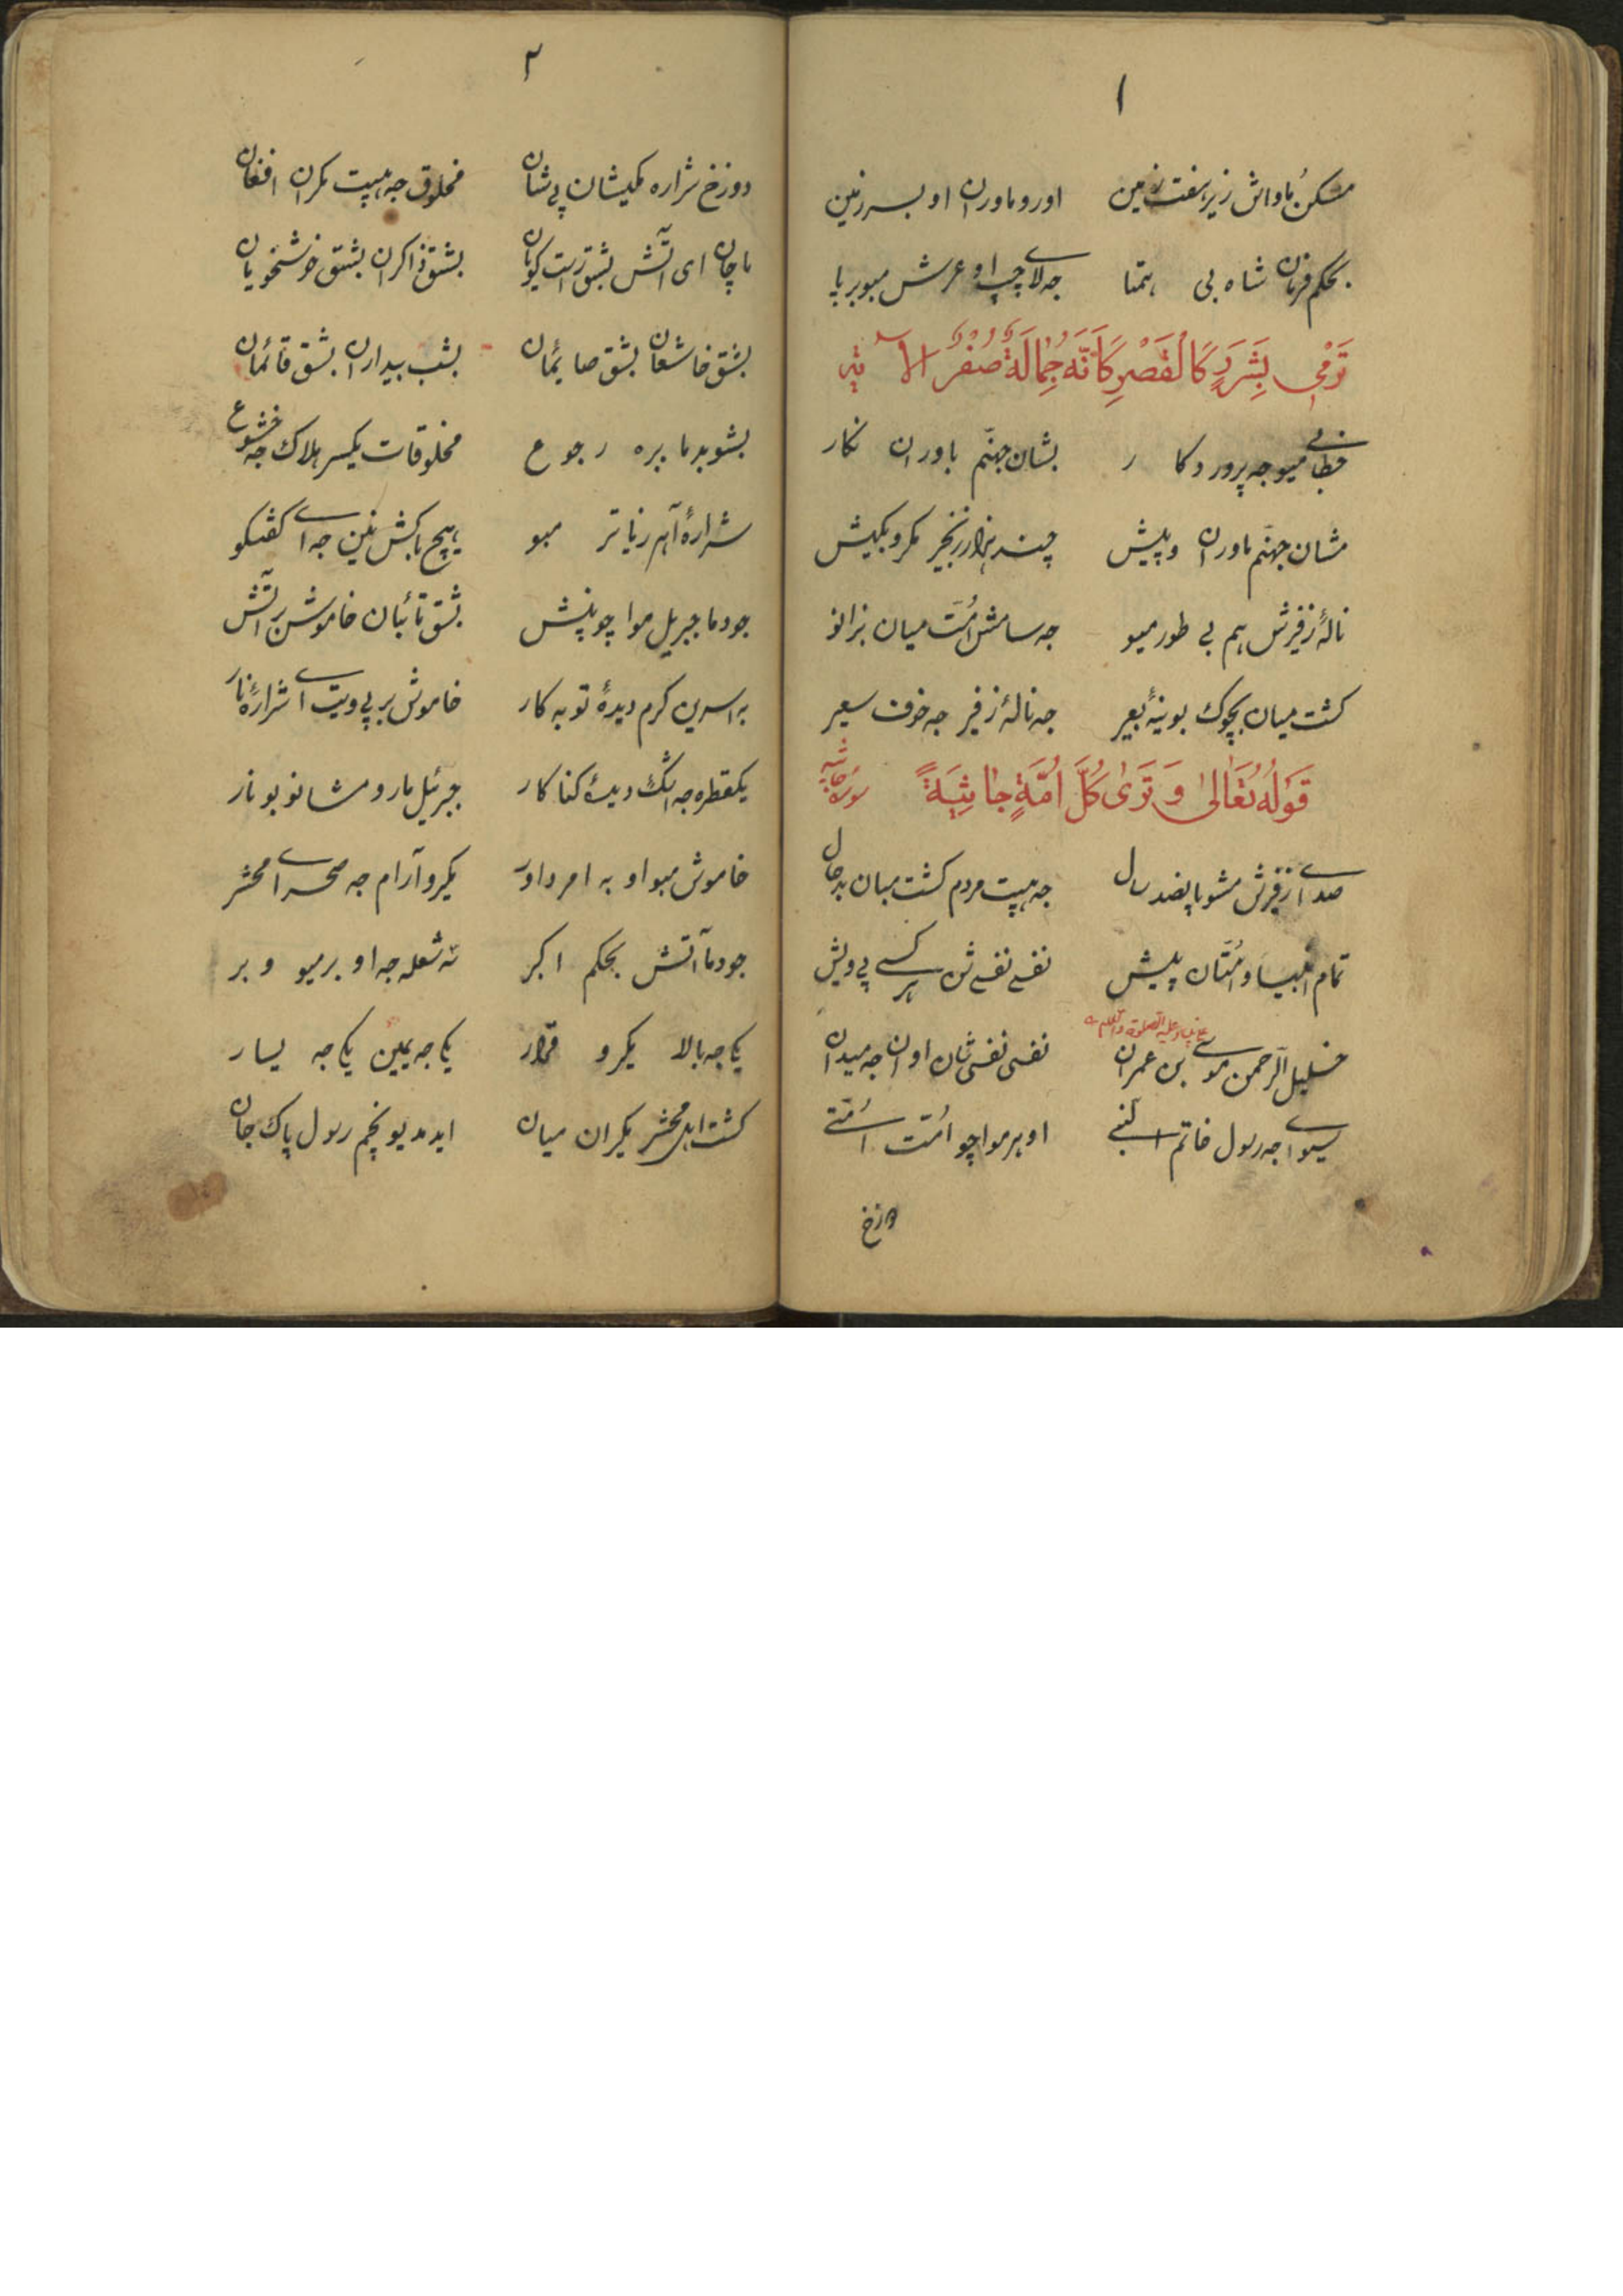 ١
مسکن ماواش زیر هفت زمین اورو ماوران او بسر زمین
بحکم فرمان شاه بی همتا جه لای چپ او عرش مبو برپا
تَرْمی بِشَرَرٍ کَالْقَصْرِ کَاَنَّهُ جِمالَةٌ صُفْرٌ الآیه
خطابی میو جه پروردکار بشان جهنّم باوران نکار
مشان جهنّم ماوران وپیش چند هزار زنجیر مکرو بکیش
نالهٔ زفیرش هم بی طور میو جه سامش امّت میان بزانو
کشت میان بچوک بوینهٔ بعیر جه نالهٔ زفیر جه خوف سعیر
قَوْلُهُ تَعَالیٰ وَ تَریٰ کُلَّ اُمَّةٍ جٰاثِیَةً سوره جاثیه
صدای زفیرش مشو پانصد سال جه هیبت مردم کشت میان بدحال
تمام انبیا و امّتان پیش نفسی نفسی شن هر کسی پی ویش
خلیل الرّحمن موسی بن عمران نفسی نفسی شان اوان جه میدان
سیوا جه رسول خاتم النبی او هر مواچو امّت امّتی
دوزخ
٢
دوزخ شراره مکیشان پی شان مخلوق جه هیبت مکران افغان
ماچان ای آتش بشق راست کویان بشق ذاکران بشق خوشخویان
بشق خاشعان بشق صایمان بشب بیداران بشق قائمان
بشو بدما بره رجوع مخلوقات یکسر هلاک جه خشوع
شرارهٔ آهر زیاتر مبو هیچ باکش نین جه ای کفتکو
جودما جبریل مواچو پنش بشق تائبان خاموش بر آتش
به اسرین کرم دیدهٔ توبه کار خاموش بر پی ویت ای شرارهٔ نار
یکقطره جه اشک دیدهٔ کناکار جبرئیل مارو مشانو بو نار
خاموش مبو او به امر داور مکرو آرام جه صحرای محشر
جودما آتش بحکم اکبر سه شعله جه او برمیو وبر
یکی جه بالا مکرو قرار یکی جه یمین یکی جه یسار
کشت اهل محشر مکران میان ایدمدیو بچم رسول پاک جان